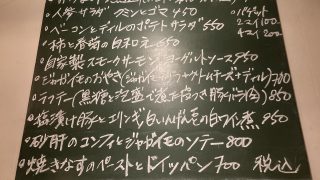 人参サラダ クミンとゴマ 450
ベーコンとディルのポテトサラダ 550
柿と春菊の白和え 550
自家製スモークサーモン ヨーグルトソース 950
ジャガイモのおやき(ジャガイモ・チーズ・ディル) 700
ラフテー(黒糖と泡盛で煮た皮つき豚バラ肉) 850
塩漬け豚とエリンギ 白いんげん豆の白ワイン煮 950
砂肝のコンフィとジャガイモのソテー 800
焼きなすのペーストとドイツパン 700 税込
バゲット
2コ 100
4コ 200